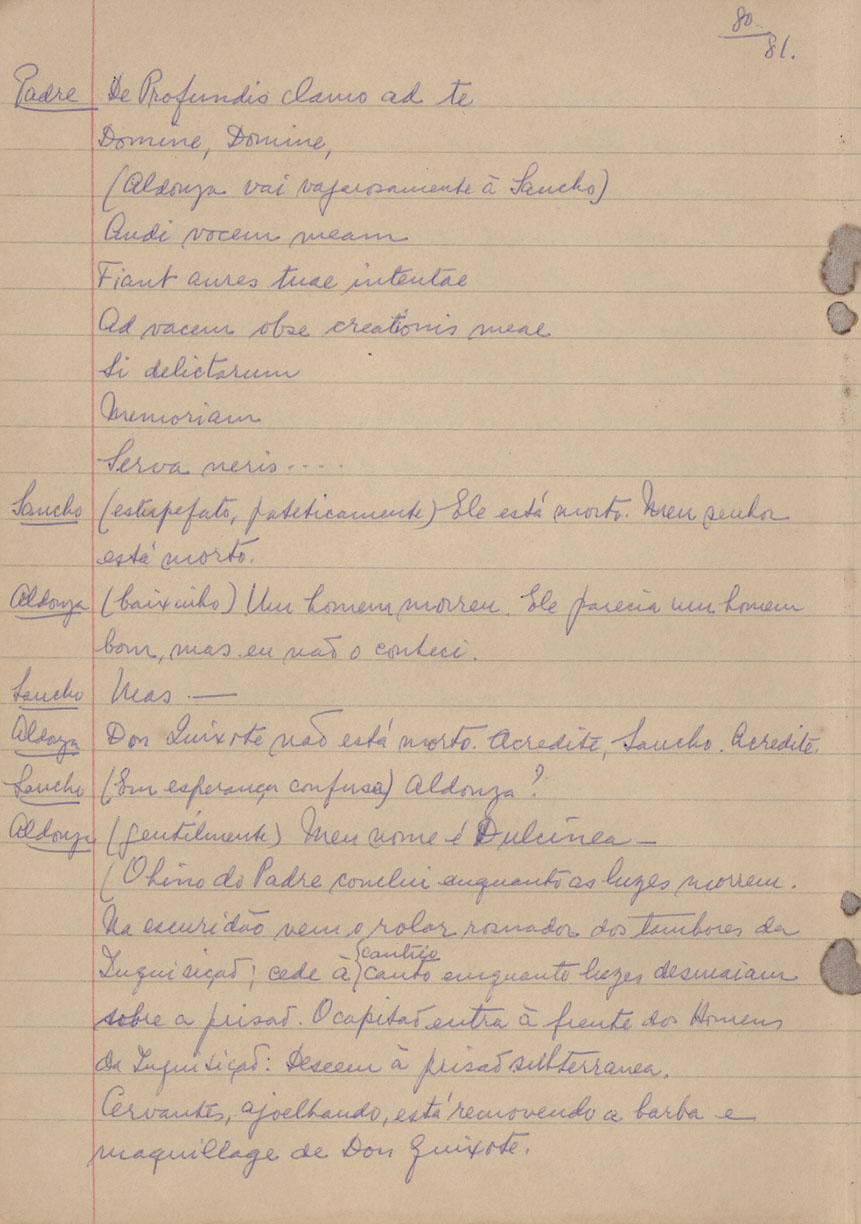 80
81.
Padre De Profundis clamo ad te
Domine, Domine,
(Aldonza vai vagarosamente à Sancho)
Audi vocem meam
Fiant aures tuae intentae
Ad vacem obse creationis meae
Si delictarum
Memoriam
Serva neris....
Sancho (estupefato, pateticamente) Ele está morto. Meu senhor
está morto.
Aldonza (baixinho) Um homem morreu. Ele parecia um homem
bom, mas eu não o conheci.
Sancho Mas —
Aldonza Don Quixote não está morto. Acredite, Sancho. Acredite.
Sancho (Em esperança confusa) Aldonza?
Aldonza (gentilmente) Meu nome é Dulcínea —
(O hino do Padre conclui enquanto as luzes morrem.
Na escuridão vem o rolar rosnador dos tambores da
cantico
Inquisição; cede à canto enquanto luzes desmaiam
sobre a prisão. O capitão entra à frente dos Homens
da Inquisição: Descem à prisão subterranea.
Cervantes, ajoelhando, está removendo a barba e
maquillage de Don Quixote.